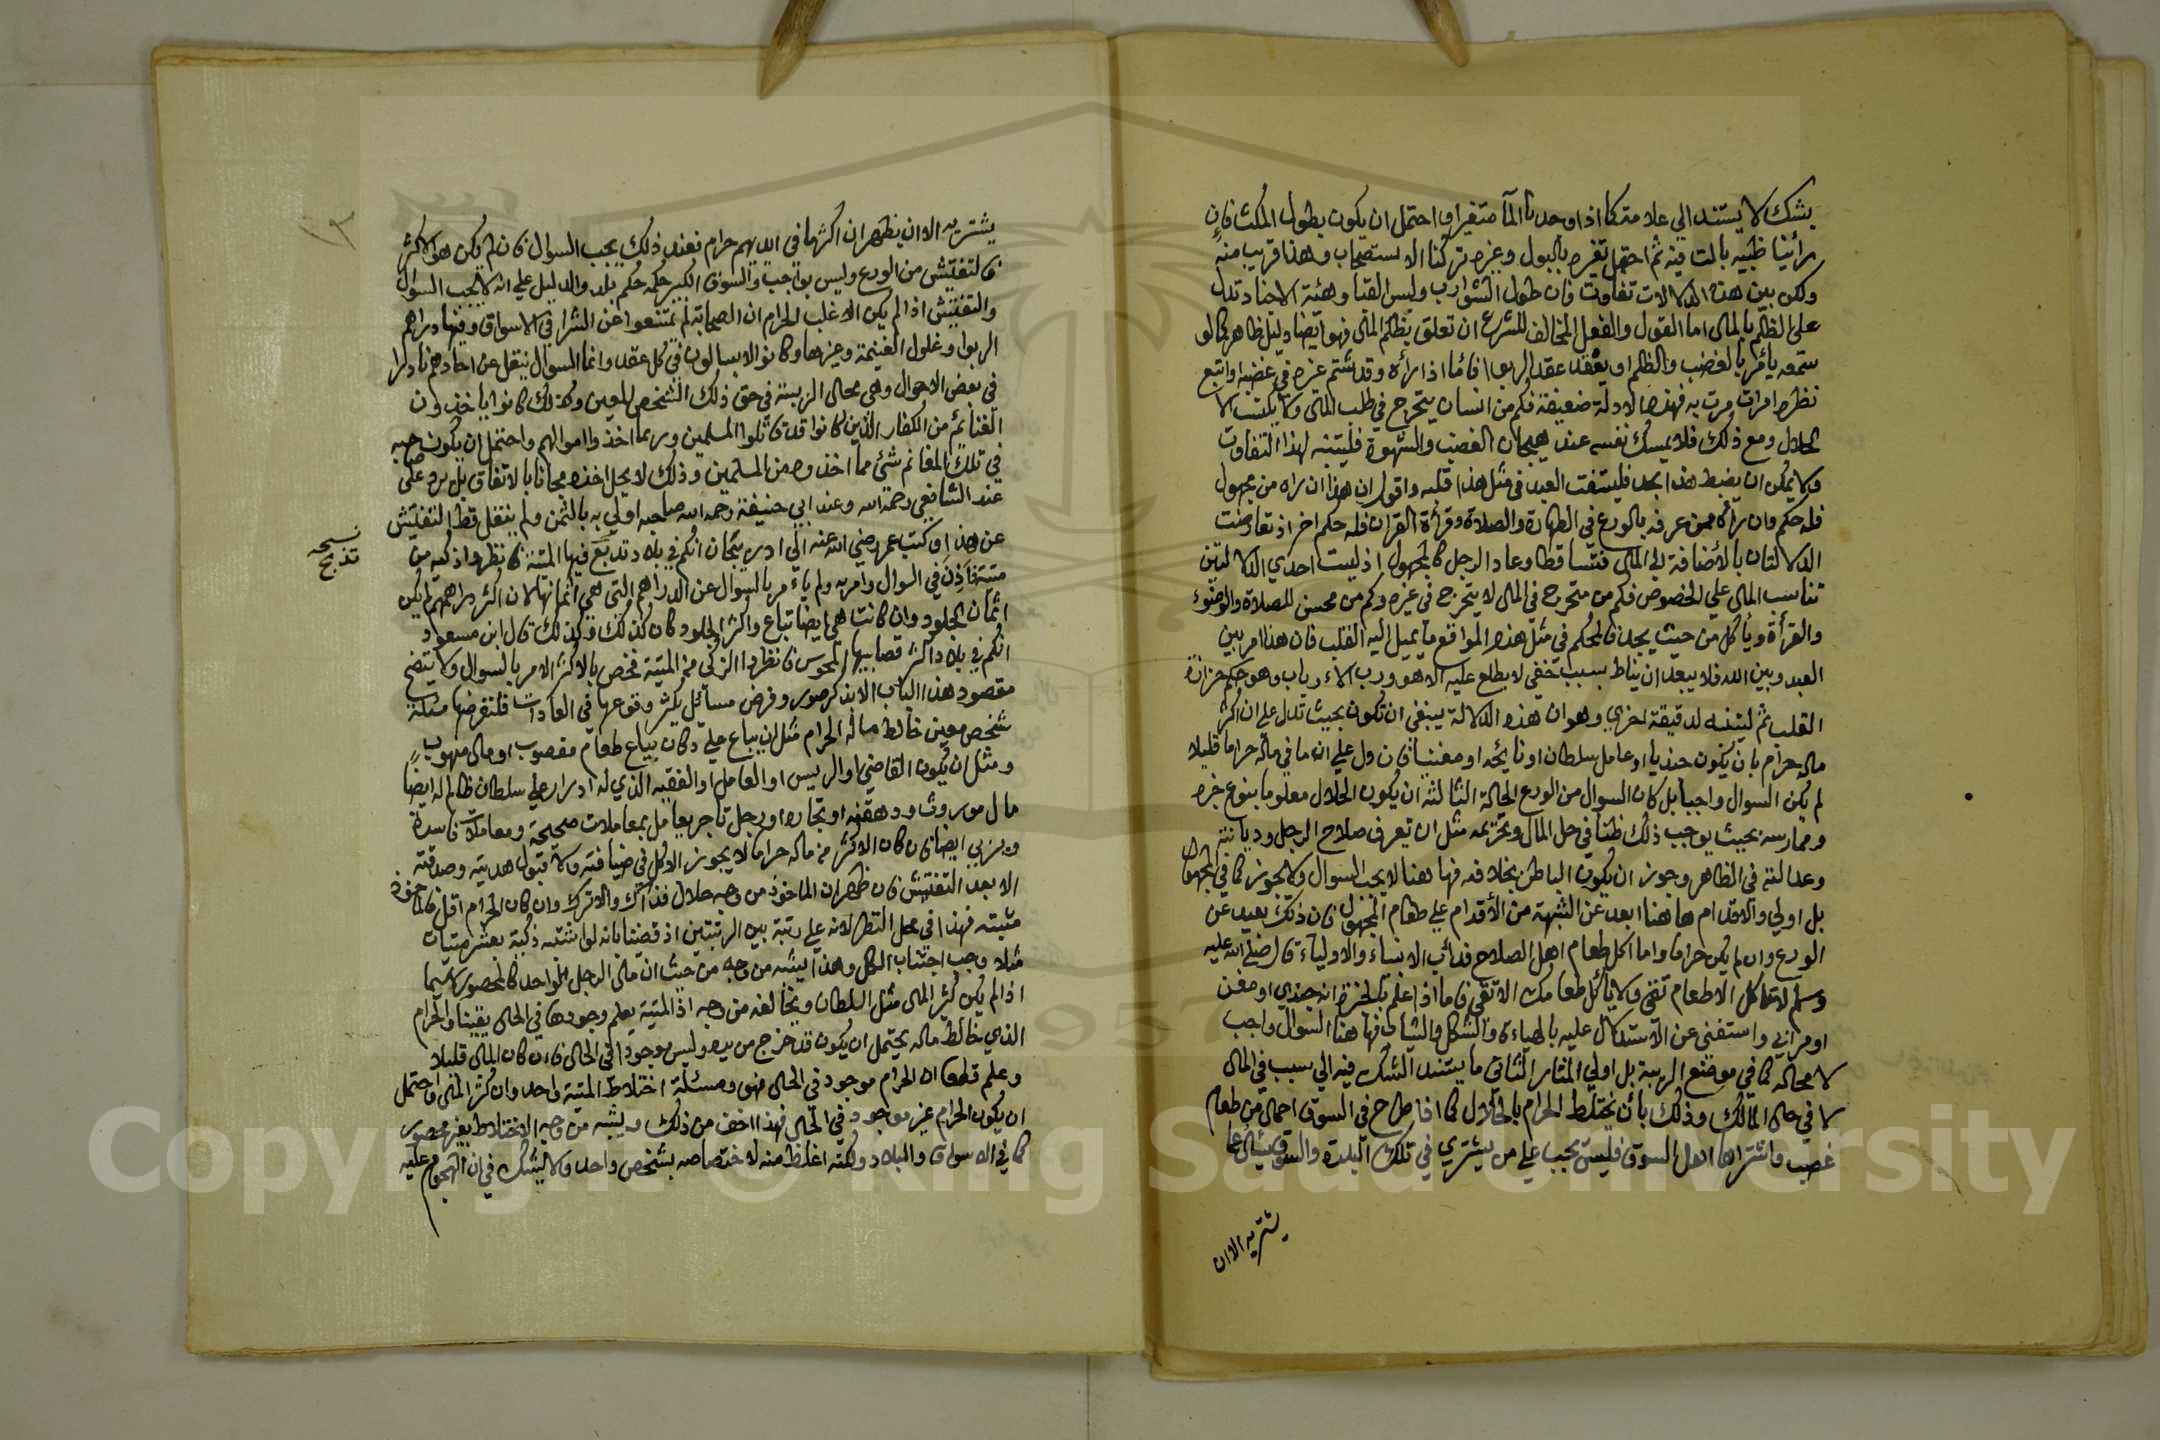 بشك لا يستند الي علامته كما اذا وجدنا المآ متغيرا واحتمل ان يكون بطول المكث فان
رائينا ظبيه بالت فيه ثم احتمل تغيره بالبول وغيره تركنا الاستصحاب وهذا قريب منه
ولكن بين هذه الدلالات تفاوت فان طول الشوارب ولبس القبا وهئة الاجناد تدل
على الظلم بالمال اما القول والفعل المخالف للشرع ان تعلق بظلم المال فهو ايضا دليل ظاهر كما لو
سمعه يأمر بالغضب والظلم او يعقد عقد الربوا فأما اذا رأه وقد شتم غيره في غضبه او اتبع
نظره امراة مرت به فهذه الادلة ضعيفة فكم من انسان يتحرج في طلب المال ولا يكتسب الا
الحلال ومع ذلك فلا يمسك نفسه عند هيجان الغضب والشهوة فليتنبه لهذا التفاوت
ولا يمكن ان يضبط هذا بحد فليستفت العبد في مثل هذا قلبه واقول ان هذا ان راه من مجهول
فله حكم وان رآه ممن عرفه بالورع في الطهارة والصلاة وقرأة القران فله حكم اخر اذ تعارضت
الدلالتان بالأضافة الى المال فتساقطا وعاد الرجل كالمجهول اذ ليست احدي الدلالتين
تناسب المال علي الخصوص فكم من متحرج في المال لا يتحرج في غيره وكم من محسن للصلاة والوضوء
والقرأة ويأكل من حيث يجد فالحكم في مثل هذه المواقع ما يميل اليه القلب فان هذا امر بين
العبد وبين الله فلا يبعد ان يناط بسبب خفي لا يطلع عليه الا هو ورب الأرباب وهو حكم حزازة
القلب ثم ليتنبه لدقيقة اخري وهو ان هذه الدلالة ينبغي ان تكون بحيث تدل علي ان اكثر
ماله حرام بان يكون جنديا او عامل سلطان او نايحه او مغنيا فان دل علي ان ما في ماله حراما قليلا
لم يكن السوال واجبا بل كان السوال من الورع الحالة الثالثة ان يكون الحلال معلوما بنوع خبره
وممارسه بحيث يوجب ذلك ظنا في حل المال وتحريمه مثل ان تعرف صلاح الرجل وديانته
وعدالته في الظاهر وجوز ان يكون الباطن بخلافه فها هنا لا يجب السوال ولا يجوز كما في المجهول
بل اولي والاقدام ها هنا ابعد عن الشبهة من الأقدام علي طعام المجهول فان ذلك بعيد عن
الورع وان لم يكن حراما واما اكل طعام اهل الصلاح فدأب الانبياء والاولياء قال صلى الله عليه
وسلم لا تاكل الا طعام تقي ولا يأكل طعامك الا تقي فاما اذا علم بالخبرة انه جندي او مغن
او مرابي واستغنى عن الاستدلال عليه بالهياءة والشكل والثياب فها هنا السوال واجب
لا محاله كما في موضع الريبة بل اولي المثار الثاني ما يستند الشك فيه الي سبب في المال
لا في حال المالك وذلك بأن يختلط الحرام بالحلال كما اذا طرح في السوق احمال من طعام
غصب واشتراها اهل السوق فليس يجب علي من يشتري في تلك البلدة والسوق ان يسئال عما
يشتريه الا ان
١٣
يشتريه الا ان يظهر ان اكثرها في ايديهم حرام فعند ذلك يجب السوال فان لم يكن هو الاكثر
فالتفتيش من الورع وليس بواجب والسوق الكبير حكمه حكم بلد والدليل علي انه لا يجب السوال
والتفتيش اذا لم يكن الاغلب الحرام ان الصحابة لم يمتنعوا عن الشرا في الاسواق وفيها دراهم
الربوا وغلول الغنيمة وغيرها وكانوا لا يسالون في كل عقد وانما السوال ينقل عن احادهم نادرا
في بعض الاحوال وهي محال الريبة في حق ذلك الشخص المعين وكذلك كانوا ياخذون
الغنائم من الكفار الذين كانوا قد قاتلوا المسلمين وربما اخذوا اموالهم واحتمل ان يكون
في تلك المغانم شئ مما اخذوه من المسلمين وذلك لا يحل اخذه مجانا بالاتفاق بل يرد على صاحبه
عند الشافعي رحمة الله وعند ابي حنيفة رحمه الله صاحبه اولي به بالثمن ولم ينقل قط التفتيش
عن هذا وكتب عمر رضي الله عنه الي ادربيجان انكم في بلاد تدبغ فيها الميتة فانظروا ذكيه من
نسخه
تذبح
ميتته فاذن في السوال وامر به ولم يأمر بالسوال عن الدراهم التي هي اثمانها لان اكثر دراهمهم لم يكن
اثمان الجلود وان كانت هي ايضا تباع واكثر الجلود كان كذلك وكذلك قال ابن مسعود
انكم في بلاد اكثر قصابيها المجوس فانظروا الزكي من الميتة فخص بالاكثر الامر بالسوال ولا يتضح
مقصود هذا الباب الا بذكر صور وفرض مسائل يكثر وقوعها في العادات فلنفرضها مسئلة
شخص معين خالط ماله الحرام مثل ان يباع علي دكان بياع طعام مغصوب او مال منهوب
ومثل ان يكون القاضي او الريس او العامل او الفقيه الذي له ادرار علي سلطان ظالم له ايضا
مال موروث ودهقنه او تجاره او رجل تاجر يعامل بمعاملات صحيحة ومعاملات فاسدة
ويربي ايضا فان كان الاكثر من ماله حراما لا يجوز الاكل في ضيافته ولا قبول هديته وصدقته
الا بعد التفتيش فان ظهر ان الماخوذ من وجه حلال فذاك والا ترك وان كان الحرام اقل فالماخوذ
مشتبه فهذا في محل النظر لانه علي رتبة بين الرتبتين اذ قضينا بانه لو اشتبه ذكية بعشر ميتات
مثلا وجب اجتناب الكل وهذا يشبه من وجه من حيث ان مال الرجل الواحد كالمحصور لاسيما
اذا لم يكن كثير المال مثل السلطان ويخالفه من وجه اذ الميتة يعلم وجودها في الحال يقينا والحرام
الذي خالط ماله يحتمل ان يكون قد خرج من يده وليس موجودا في الحال فان كان المال قليلا
وعلم قطعا ان الحرام موجود في الحال فهو ومسئلة اختلاط الميتة واحد وان كثر المال واحتمل
ان يكون الحرام غير موجود في الحال فهذا اخف من ذلك ويشبه من وجه الاختلاط بغير محصور
كما في الاسواق والبلاد ولكنه اغلظ منه لاختصاصه بشخص واحد ولا يشك في ان الهجوم عليه
Copyright © King Saud University
1957